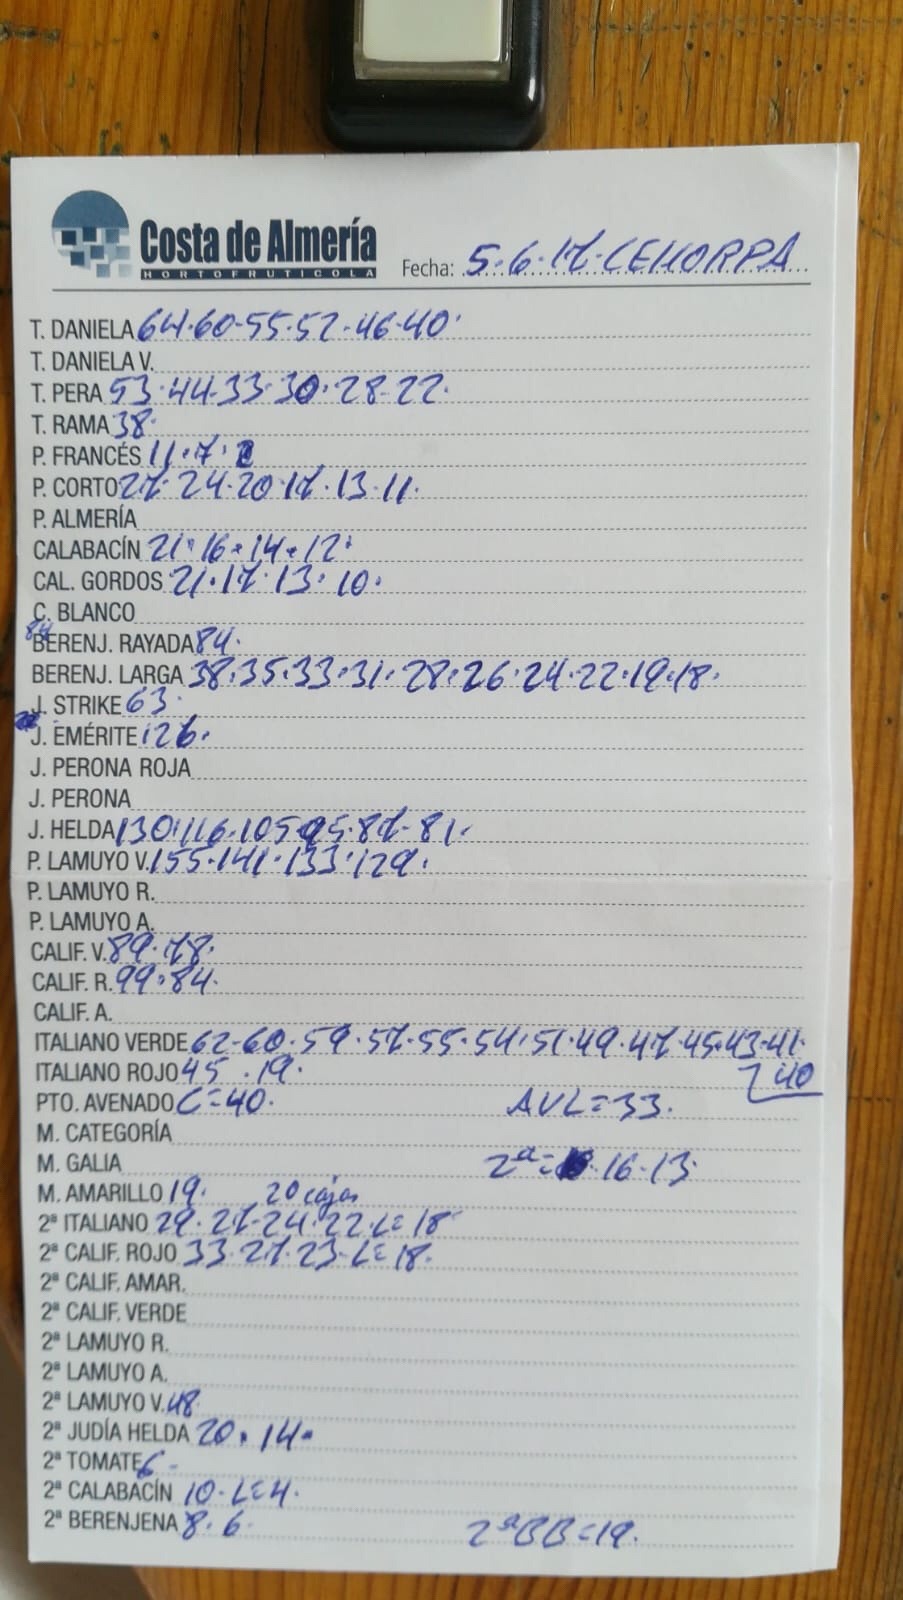 Costa de Almería
HORTOFRUTICOLA
Fecha: 5.6.17.CEHORPA
T. DANIELA 64.60-55.52-46-40.
T. DANIELA V.
T. PERA 53.44-33.30.28-22.
T. RAMA 38.
P. FRANCÉS 11.7.
P. CORTO 27.24-20.17.13.11.
P. ALMERÍA
CALABACÍN 21.16.14.12.
CAL. GORDOS 21.17.13.10.
C. BLANCO
84
BERENJ. RAYADA 84.
BERENJ. LARGA 38.35.33.31.28.26.24.22.19.18.
J. STRIKE 63.
J. EMÉRITE 126.
J. PERONA ROJA
J. PERONA
J. HELDA 130.116.105.95.87-81.
P. LAMUYO V. 155.141.133.129.
P. LAMUYO R.
P. LAMUYO A.
CALIF. V. 89.78.
CALIF. R. 99.84.
CALIF. A.
ITALIANO VERDE 62-60.59.57.55.54.51.49.47.45.43.41.
ITALIANO ROJO 45.19. 40
PTO. AVENADO C=40. AVL=33.
M. CATEGORÍA
M. GALIA 2ª= 16-13.
M. AMARILLO 19. 20 cajas
2ª ITALIANO 29.27-24.22-L=18
2ª CALIF. ROJO 33.27.23-L=18.
2ª CALIF. AMAR.
2ª CALIF. VERDE
2ª LAMUYO R.
2ª LAMUYO A.
2ª LAMUYO V. 48.
2ª JUDÍA HELDA 20.14.
2ª TOMATE 6-
2ª CALABACÍN 10-L=4.
2ª BERENJENA 8.6. 2ªBB=19.